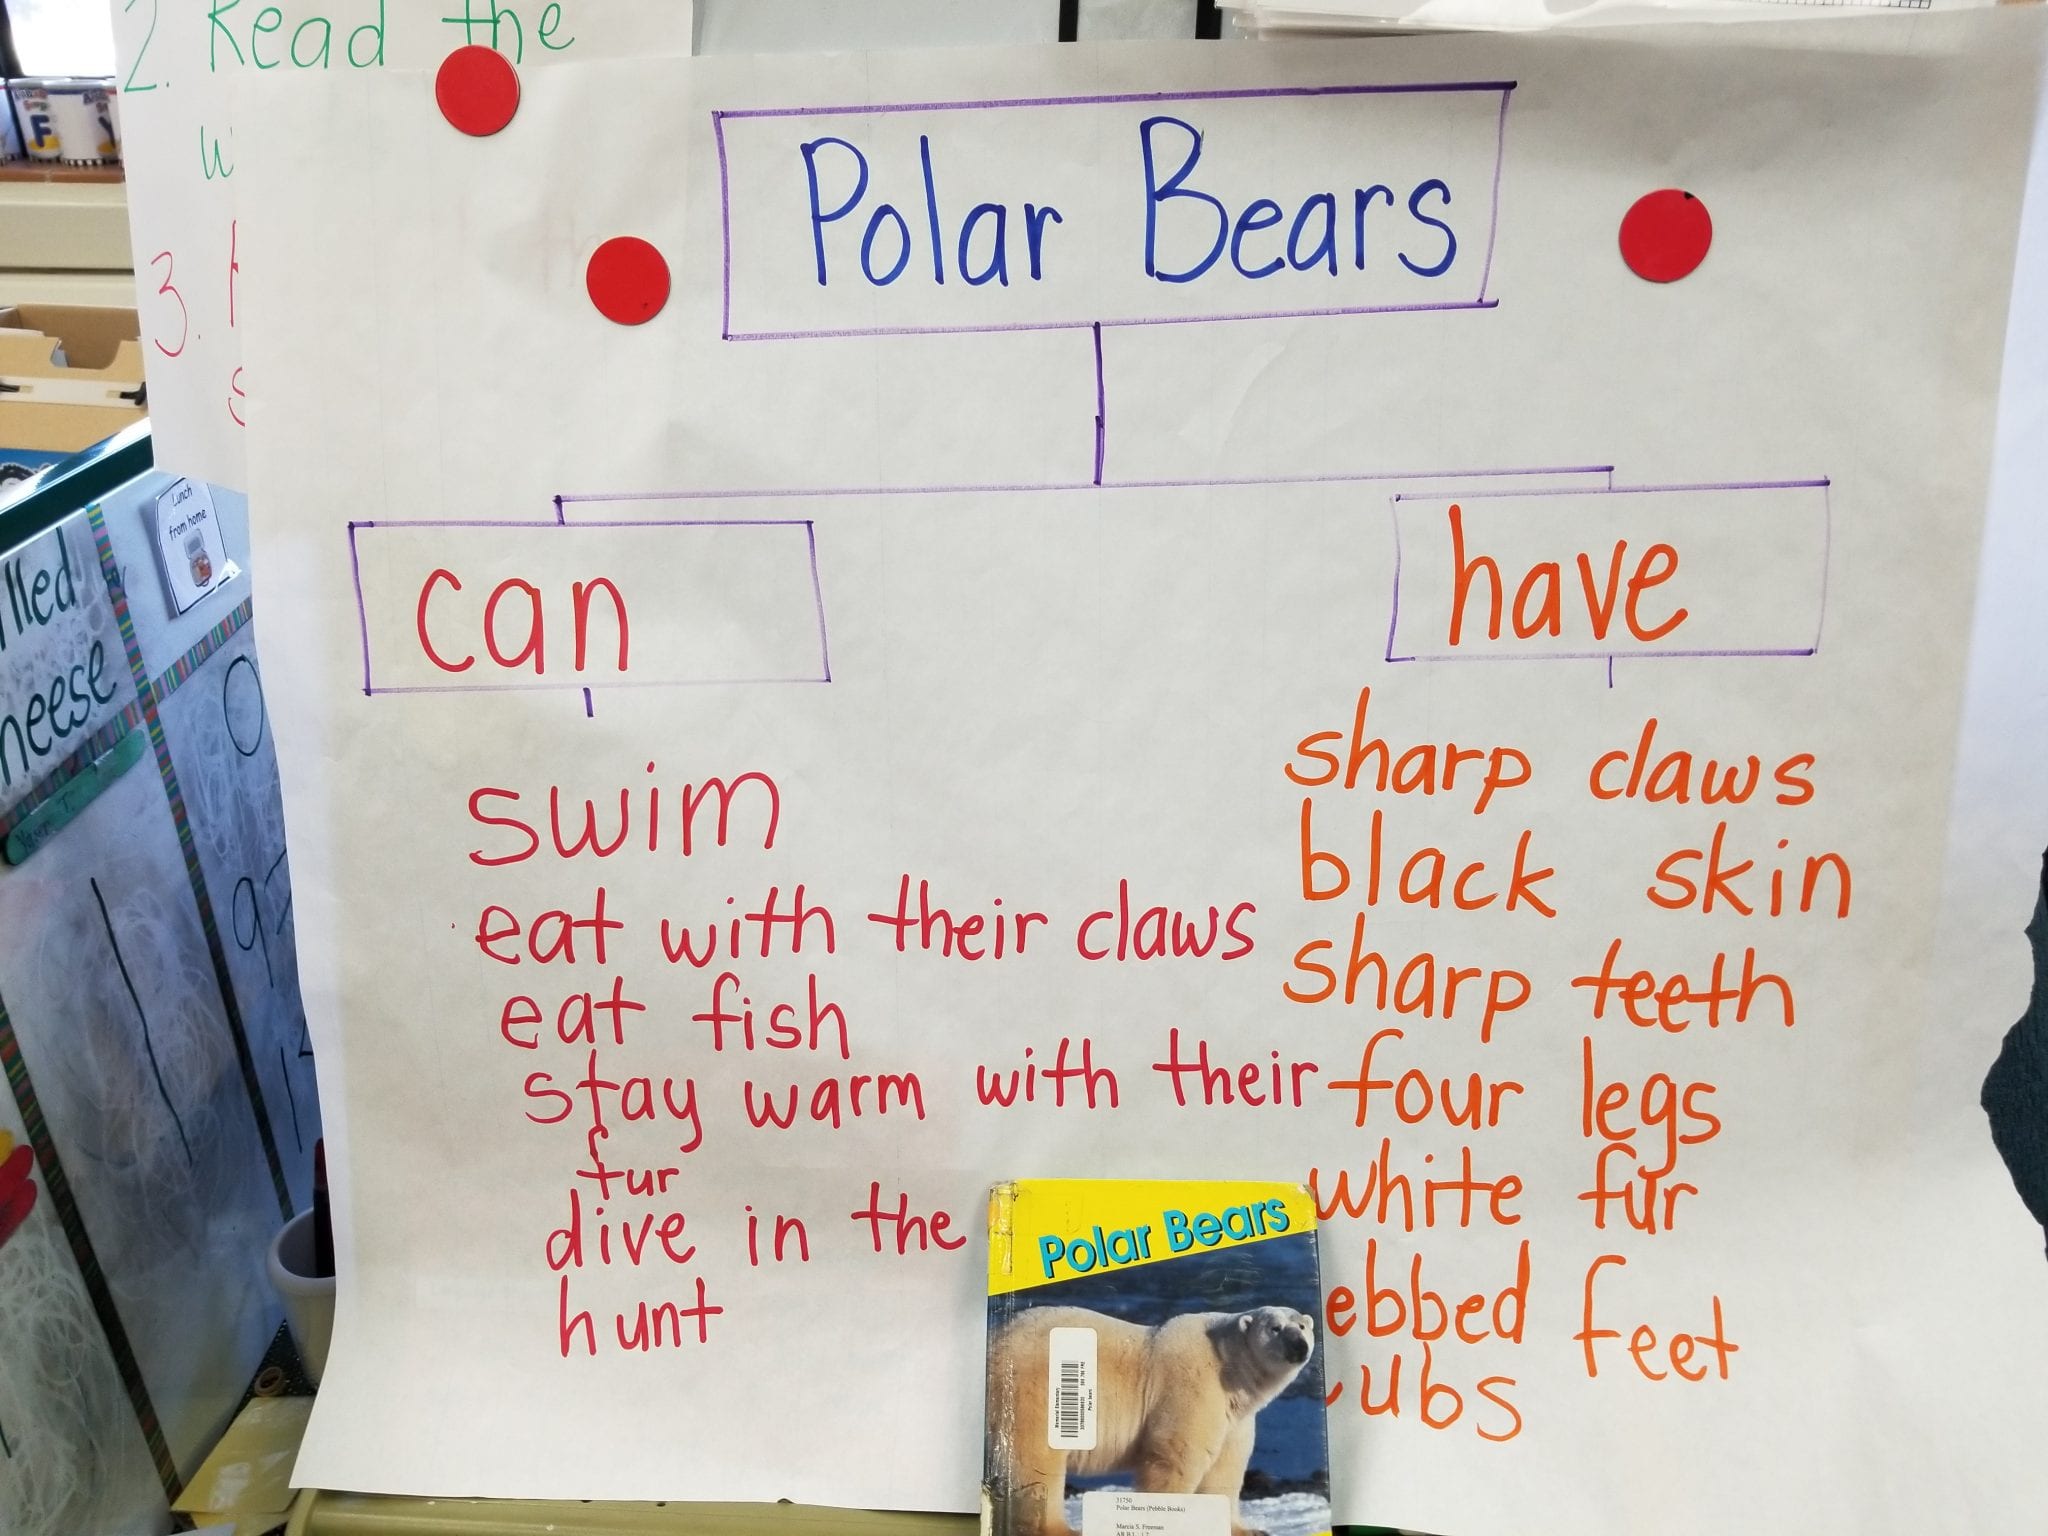 2. Read the
3.
Polar Bears
can
swim
eat with their claws
eat fish
stay warm with their
fur
dive in the
hunt
have
sharp claws
black skin
sharp teeth
four legs
white fur
ebbed feet
cubs
Polar Bears
31750
Polar Bears (Pebble Books)
Marcia S. Freeman
Lunch
from home
lled
heese
F